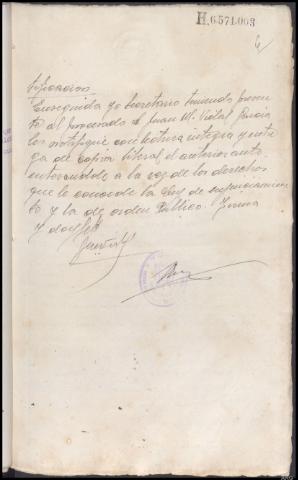 H.6571.003
Enseguida yo Secretario teniendo presen-
te al procesado D. Juan Mª Vidal García
les notifiqué con lectura íntegra y entre-
ga de copia literal el anterior auto
enterandole a la vez de los derechos
que le concede la Ley de enjuiciamien-
to y la de orden Público. Firma
y doy fé